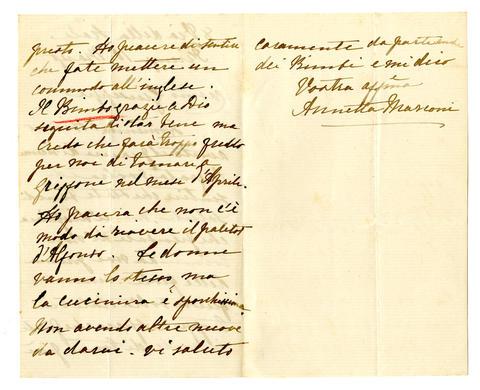 presto. Ho piacere di sentire
che fate mettere un
commodo all'inglese.
Il Bimbo grazie a Dio
seguita di star bene ma
credo che farà troppo freddo
per noi di tornare a
Griffone nel mese d'Aprile.
Ho paura che non c'è
modo da riavere il paletot
d'Alfonso. Le donne
vanno lo stesso, ma
la cuciniera è sporchissima
Non avendo altre nuove
da darvi. vi saluto
caramente da parte
dei Bimbi e mi dico
Vostra affma
Annetta Marconi